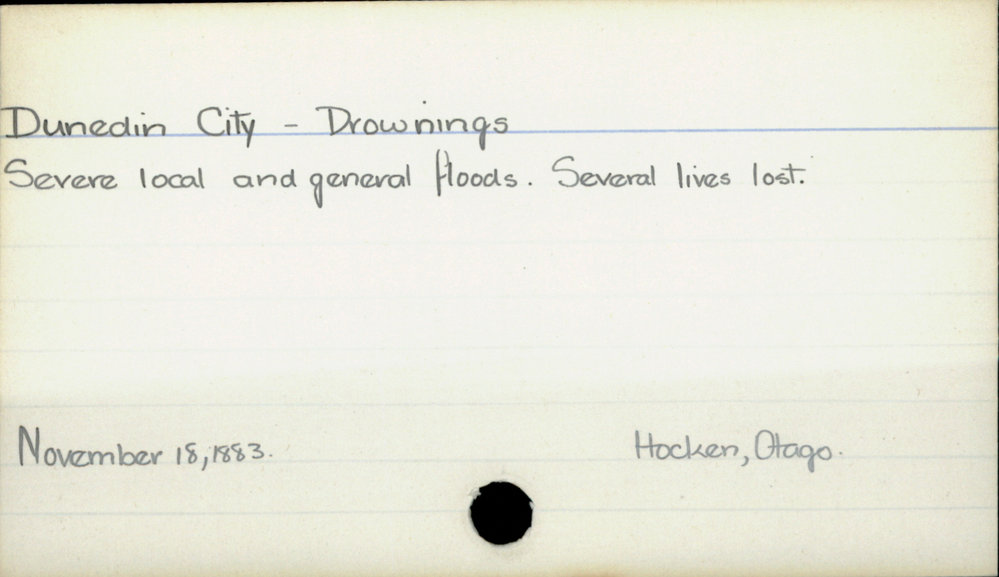 Dunedin City - Drownings
Severe local and general floods. Several lives lost.
November 18, 1883.
Hocken, Otago.